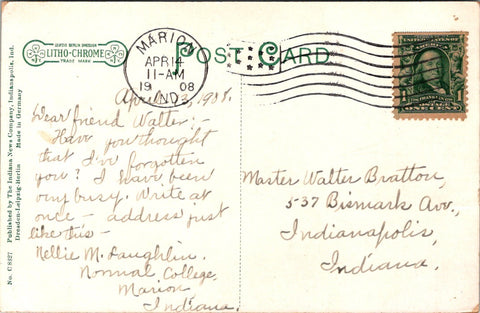 CURTIS BERLIN DRESDEN
LITHO-CHROME
TRADE MARK
MARION
APR 14
11-AM
1908
IND.
POST CARD
UNITED STATES OF AMERICA
ONE CENT
April 13, 1908.
Dear friend Walter:-
Have you thought
that I've forgotten
you? I have been
very busy. Write at
once - address just
like this -
Nellie McLaughlin.
Normal College,
Marion
Indiana.
Master Walter Bratton,
537 Bismark Ave.,
Indianapolis,
Indiana.
No. C 8227 Published by The Indiana News Company, Indianapolis, Ind.
Dresden-Leipzig-Berlin Made in Germany